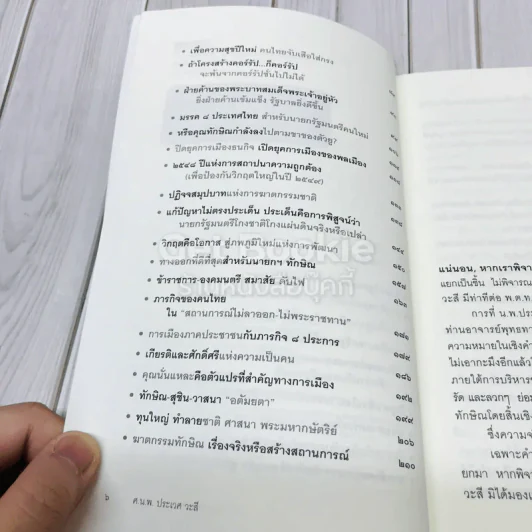 • เพื่อความสุขปีใหม่ คนไทยจับเสือใส่กรง
• ถ้าโครงสร้างคอร์รัป...ก็คอร์รัป
จะพ้นจากคอร์รัปชั่นไปไม่ได้
• ฝ่ายค้านของพระบาทสมเด็จพระเจ้าอยู่หัว
ยิ่งฝ่ายค้านเข้มแข็ง รัฐบาลยิ่งดีขึ้น
• มรรค ๘ ประเทศไทย สำหรับนายกรัฐมนตรีคนใหม่
• หรือคุณทักษิณกำลังลงไปตามขาของตัวยู?
• ปิดยุคการเมืองธนกิจ เปิดยุคการเมืองของพลเมือง
• ๒๕๔๘ ปีแห่งการสถาปนาความถูกต้อง
(เพื่อป้องกันวิกฤตใหญ่ในปี ๒๕๔๙)
• ปฏิจจสมุปบาทแห่งการฆาตกรรมชาติ
• แก้ปัญหาไม่ตรงประเด็น ประเด็นคือการพิสูจน์ว่า
นายกรัฐมนตรีโกงชาติโกงแผ่นดินจริงหรือเปล่า
• วิกฤตคือโอกาส สู่ภพภูมิใหม่แห่งการพัฒนา ๑๔๙
• ทางออกที่ดีที่สุดสำหรับนายกฯ ทักษิณ ๑๕๐
• ข้าราชการ-องคมนตรี สมาสัย ดับไฟ ๑๕๘
• ภารกิจของคนไทย ๑๖๓
ใน "สถานการณ์ไม่ลาออก-ไม่พระราชทาน"
• การเมืองภาคประชาชนกับภารกิจ ๘ ประการ ๑๘๑
• เกียรติและศักดิ์ศรีแห่งความเป็นคน ๑๘๙
• คุณนั่นแหละคือตัวแปรที่สำคัญทางการเมือง ๑๘๖
• ทักษิณ-สุชิน-วาสนา "อตัมยตา" ๑๙๒
• ทุนใหญ่ ทำลายชาติ ศาสนา พระมหากษัตริย์ ๑๙๙
• ฆาตกรรมทักษิณ เรื่องจริงหรือสร้างสถานการณ์ ๒๐๖
๒๑๐
๖ ศ.น.พ. ประเวศ วะสี
ร้านหนังสือบุ๊คกี้
แน่นอน, หากเราพิจา
แยกเป็นชิ้น ไม่พิจารณ
วะสี มีท่าทีต่อ พ.ต.ท.
การที่ น.พ.ประ
ท่านอาจารย์พุทธทา
ความหมายในเชิงคำ
ไม่เอากะมึงอีกแล้วโ
ภายใต้การบริหารข
รัด และลวกๆ ย่อม
ทักษิณโดยสิ้นเชิง
ซึ่งความจ
เฉพาะคำ
ยกมา หากพิจา
วะสี มิได้มองเ